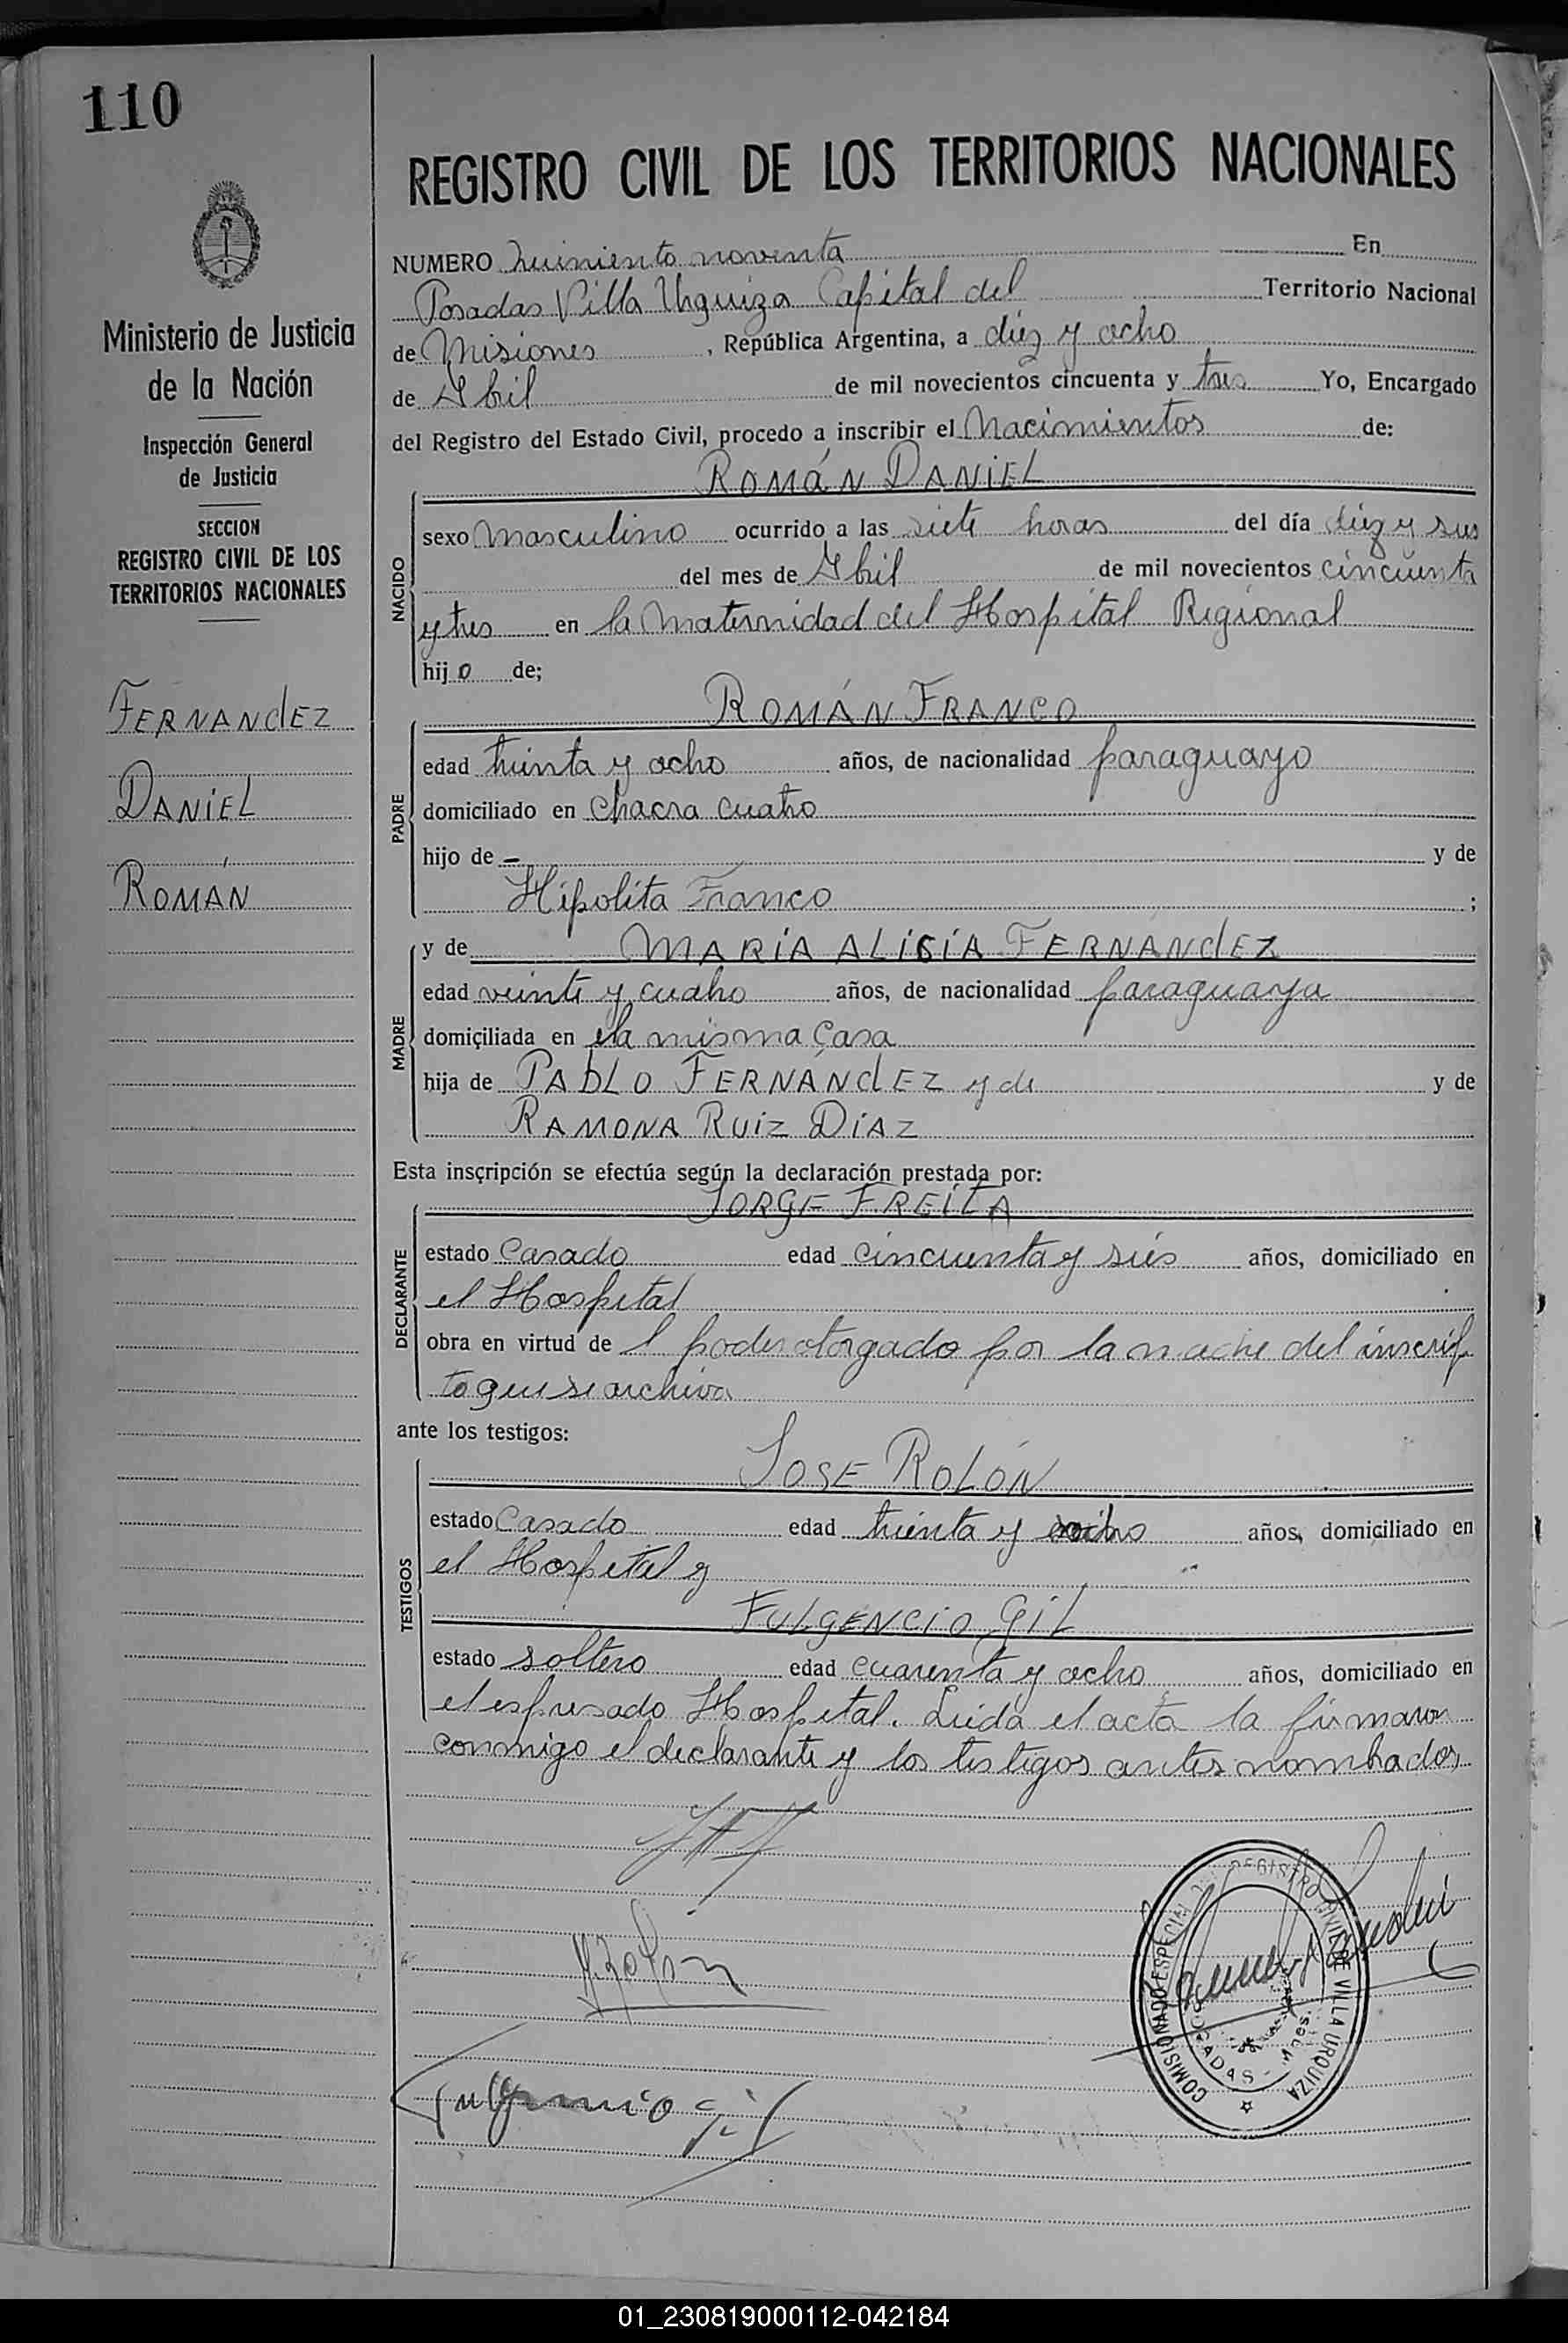 110
REGISTRO CIVIL DE LOS TERRITORIOS NACIONALES
Ministerio de Justicia
de la Nación
Inspección General
de Justicia
SECCION
REGISTRO CIVIL DE LOS
TERRITORIOS NACIONALES
FERNANdEZ
DANiEL
ROMÁN
NUMERO quiniento noventa En
Posadas Villa Urquiza Capital del Territorio Nacional
de Misiones, República Argentina, a diez y ocho
de Abril de mil novecientos cincuenta y tres Yo, Encargado
del Registro del Estado Civil, procedo a inscribir el Nacimientos de:
ROMáN DANiEL
NACIDO
sexo masculino ocurrido a las siete horas del día diez y seis
del mes de Abril de mil novecientos cincuenta
y tres en la Maternidad del Hospital Regional
hijo de;
ROMÁN FRANCO
PADRE
edad treinta y ocho años, de nacionalidad paraguayo
domiciliado en chacra cuatro
hijo de - y de
Hipolita Franco ;
y de MARíA ALiCiA FERNANdEZ
MADRE
edad veinte y cuatro años, de nacionalidad paraguaya
domiciliada en la misma casa
hija de PAbLO FERNÁNdEZ y de y de
RAMONA RUiZ DíAZ
Esta inscripción se efectúa según la declaración prestada por:
JORGE FREiTA
DECLARANTE
estado Casado edad cincuenta y seis años, domiciliado en
el Hospital
obra en virtud de l poder otorgado por la madre del inscrip
to que se archiva
ante los testigos:
JOSE ROLÓN
TESTIGOS
estado Casado edad treinta y ocho años, domiciliado en
el Hospital y
FULGENCiO GiL
estado soltero edad cuarenta y ocho años, domiciliado en
el espresado Hospital. Leida el acta la firmaron
conmigo el declarante y los testigos antes nombrados
Fulgencio Gil
COMISIONADO ESPECIAL DEL REGISTRO CIVIL DE VILLA URQUIZA
POSADAS - Mnes.
01_230819000112-042184